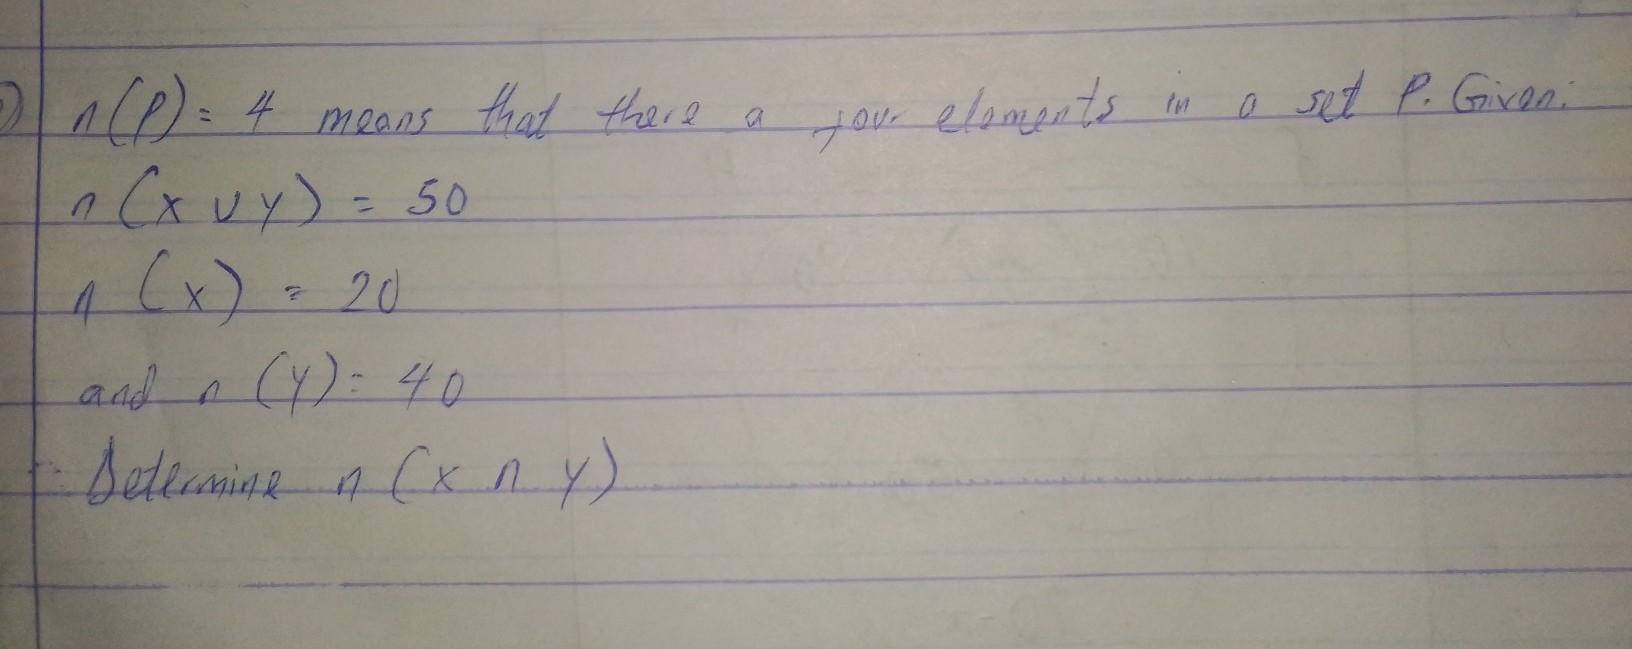 n(P) = 4 means that there a four elements in a set P. Given:
n (x ∪ y) = 50
n (x) = 20
and n (y) = 40
Determine n (x ∩ y)